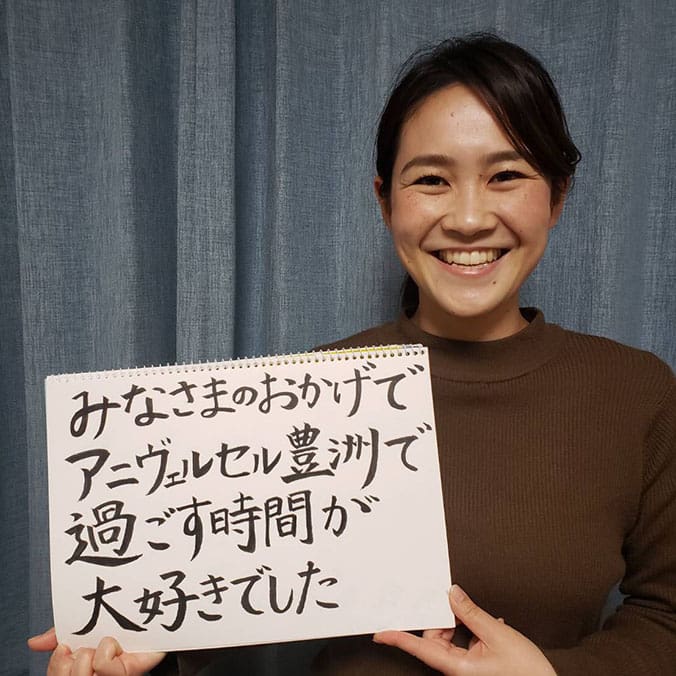 みなさまのおかげで
アニヴェルセル豊洲で
過ごす時間が
大好きでした